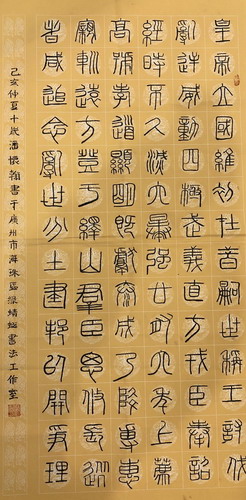 皇帝立國維初在昔嗣世稱王討伐
亂逆威動四極武義直方戎臣奉詔
經時不久滅六暴強廿有六年上薦
高號孝道顯明既獻泰成乃降專惠
寴遠方登于繹山羣臣思攸長
者咸追念亂世分土建邦以開爭理
己亥仲夏十歲潘懷翰書于廣州市海珠區書法工作室